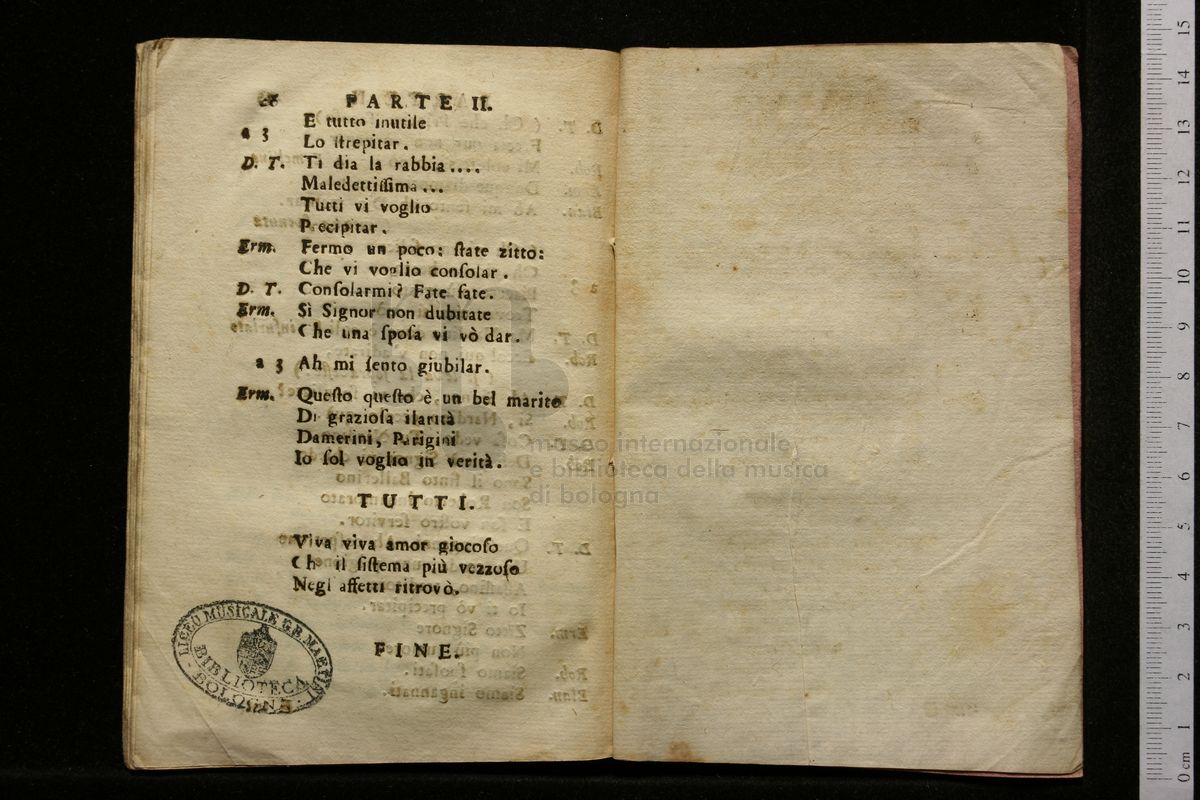 PARTE II.
E tutto inutile
a 3
Lo ſtrepitar.
D. T. Ti dia la rabbia....
Maledettiſſima...
Tutti vi voglio
Precipitar.
Erm. Fermo un poco: ſtate zitto:
Che vi voglio conſolar.
D. T. Conſolarmi? Fate fate.
Erm. Sì Signor non dubitate
Che una ſpoſa vi vò dar.
a 3 Ah mi ſento giubilar.
Erm. Queſto queſto è un bel marito
Di grazioſa ilarità
Damerini, Parigini
Io ſol voglio in verità.
TUTTI.
Viva viva amor giocoſo
Ch il ſiſtema più vezzoſo
Negl affetti ritrovò.
FINE.
LICEO MUSICALE G.B. MARTINI
BIBLIOTECA
BOLOGNA
museo internazionale
e biblioteca della musica
di bologna
0 cm 1 2 3 4 5 6 7 8 9 10 11 12 13 14 15